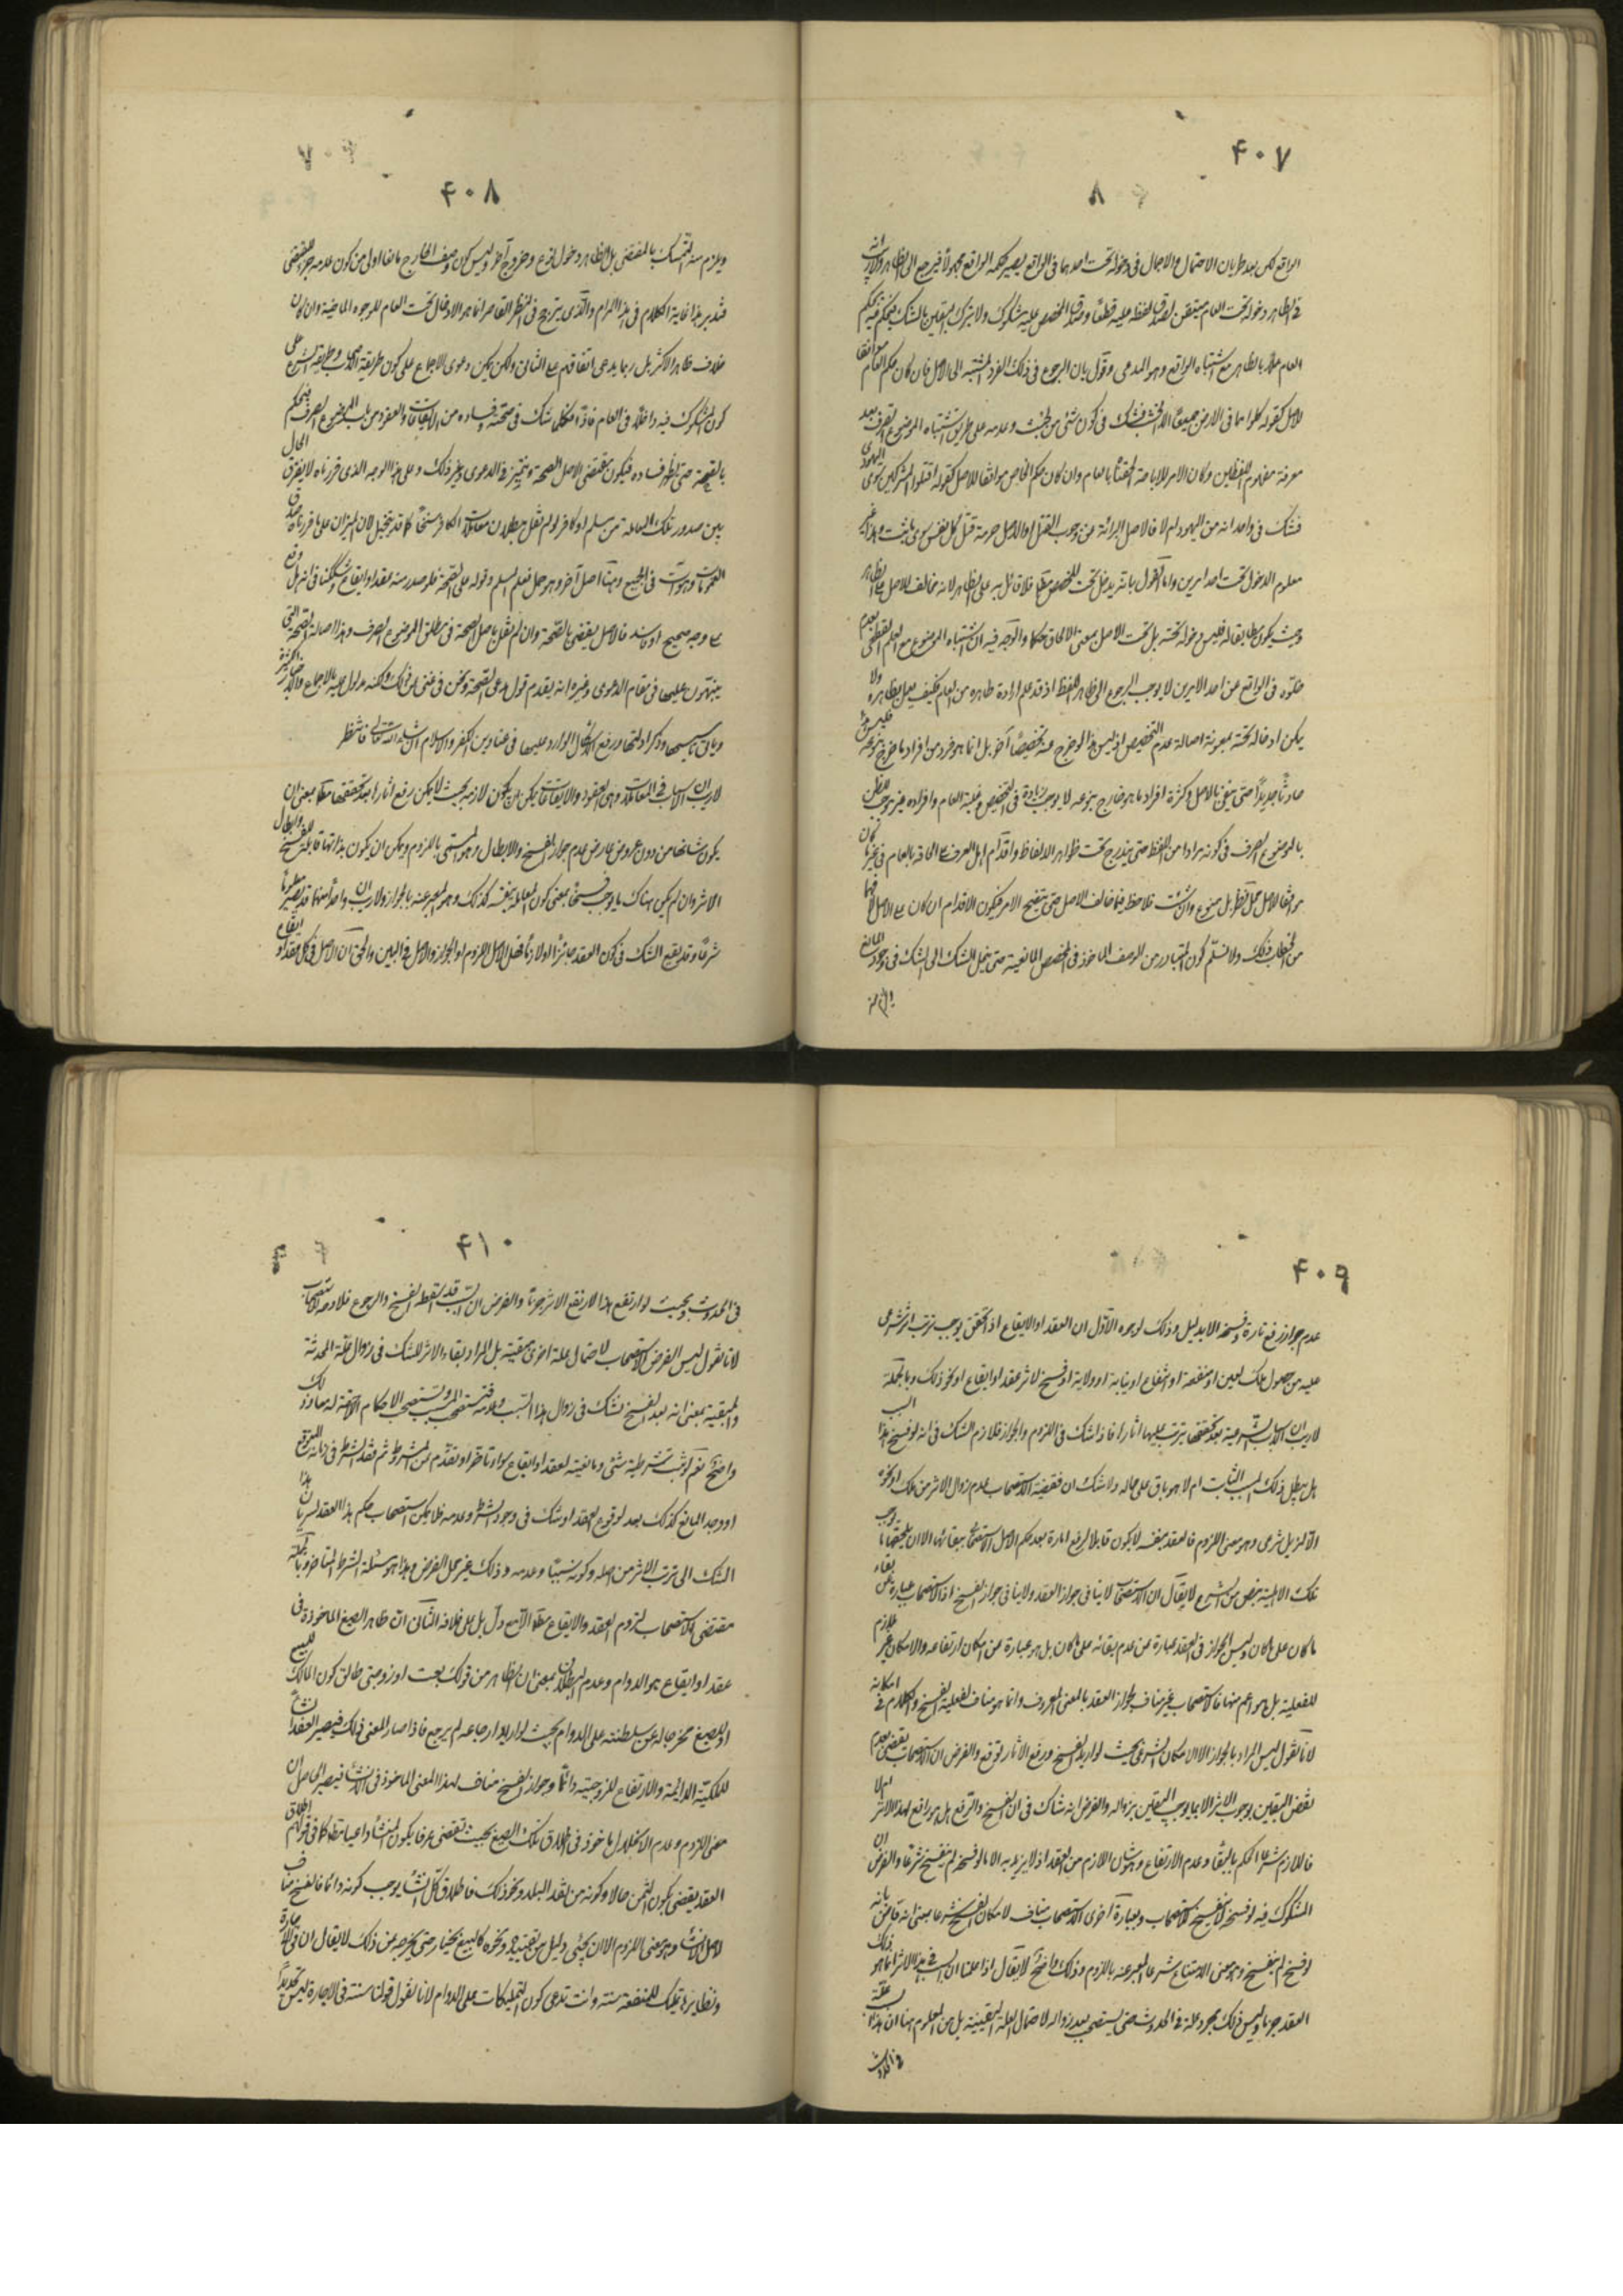 ۴۰۷
الواقع لكن بعد طريان الاحتمال والاجمال في دخوله تحت احدهما في الواقع يصير حكمه الواقعي مجهولاً فيرجع الى الظاهر ولا ريب انه
في الظاهر دخوله تحت العام متيقن لصدق لفظه عليه قطعاً وصدق المخصص عليه مشكوك ولا يترك اليقين بالشك فيحكم فيه بحكم
العام عملاً بالظاهر مع اشتباه الواقع وهو المدعى وقول بان الرجوع في ذلك الفرد المشتبه الى الاصل فان كان حكم العام موافقا
للاصل كقوله كلوا مما في الارض جميعاً الا الخبث فشك في كون شئ من الخبث وعدمه على طريق اشتباه الموضوع الصرف بعد
معرفة مفهوم اللفظين وكان الامر للاباحة لحقنا بالعام وان كان حكم الخاص موافقا للاصل كقوله اقتلوا المشركين سوى اليهودى
فشك في واحد انه من اليهود ام لا فالاصل البرائة من وجوب القتل او الاصل حرمة قتل كل نفس سوى ما ثبت وهذا غير
معلوم الدخول تحت احد امرين واما القول بانه يدخل تحت المخصص مطلقا فلا قائل به على الظاهر لانه مخالف للاصل والظاهر
وحيث يكون مطابقا له فليس دخوله تحته بل تحت الاصل بمعنى الالحاق حكما والوجه فيه ان اشتباه الموضوع مع العلم القطعي بعدم
خلوه في الواقع عن احد الامرين لا يوجب الرجوع الى ظاهر اللفظ اذ قد علم ارادة ظاهره من العلم فكيف يعمل بظاهره ولا
يمكن ادخاله تحته بمعونة اصالة عدم التخصيص اذ ليس هذا لو خرج عنه تخصيصاً آخر بل انما هو فرد من افراد ما خرج بنوعه فليس شيئاً
حادثاً جديداً حتى ينفى بالاصل وكثرة افراد ما هو خارج بنوعه لا يوجب زيادة في التخصيص وغلبة العام وافراده غير موجب للظن
بالموضوع الصرف في كونه مرادا من اللفظ حتى يندرج تحت ظواهر الالفاظ واقدام اهل العرف على الحاقه بالعام في غير ما كان
موافقا للاصل محل نظر بل ممنوع وان شئت فلاحظ فيما خالف الاصل حتى يتضح الامر فيكون الاقدام ان كان على الاصل فهما
من الخطاب ذلك ولا نسلم كون المتبادر من الوصف الماخوذ في المخصص المانعية حتى ينحل الشك الى الشك في وجود المانع
ويلزم منه
۴۰۸
ويلزم منه التمسك بالمقتضى بل الظاهر دخول نوع وخروج آخر وليس كون وصف الخارج مانعا اولى من كون عدمه جزء المقتضى
فتدبر هذا غاية الكلام في هذا المرام والذى يترجح في النظر القاصر انما هو الادخال تحت العام للوجوه الماضية وان كان
خلاف ظاهر الاكثر بل ربما يدعى اتفاقهم على الثاني ولكن يمكن دعوى الاجماع على كون طريقة الاصحاب وطريقة الشرع على
كون المشكوك فيه داخلاً في العام فاذاً كلما شك في صحته وفساده من الايقاعات والعقود من باب الموضوع الصرف فيحكم
بالصحة حتى يظهر فساده فيكون مقتضى الاصل الصحة ويتميز به الدعوى وغير ذلك وعلى هذا الوجه الذى قررناه لا يفرق الحال
بين صدور تلك المعاملة من مسلم او كافر لو لم نقل ببطلان معاملات الكافر سنخاً كما قد يتخيل لان الميزان على ما قررناه صدق
العموم وهو آت في الجميع وهنا اصل آخر وهو حمل فعل المسلم وقوله على الصحة فلو صدر منه عقد او ايقاع وشككنا في انه هل وقع
على وجه صحيح او فاسد فالاصل يقتضى بالصحة وان لم نقل باصل الصحة في مطلق الموضوع الصرف وهذا اصالة الصحة التي
ينبهون عليها في مقام الدعوى وغيره انه يقدم قول مدعى الصحة ونحن في غنى عن ذلك ولكنه مدلول عليه بالاجماع
وياتي تاسيسها وذكر ادلتها ورفع الاشكال الوارد عليها في عناوين الكفر والاسلام ان شاء الله تعالى فانتظر
لا ريب ان الاسباب في المعاملات وهى العقود والايقاعات يمكن ان يكون لازمة بحيث لا يمكن رفع اثارها بعد تحققها مطلقا بمعنى ان
يكون شانها من دون عروض عارض عدم جواز الفسخ والابطال وهو المسمى باللزوم ويمكن ان يكون بذاتها قابلة للفسخ وابطال
الاثر وان لم يكن هناك ما يوجب فسخاً بمعنى كون المعاملة بنفسه كذلك وهو المعبر عنه بالجواز ولا ريب ان واحداً منهما قد يصير معلوماً
شرعاً وقد يقع الشك في كون العقد جائزاً او لازماً فهل الاصل اللزوم او الجواز والاصل في البين والحق ان الاصل في كل عقد او ايقاع
۴۰۹
عدم جواز رفع اثاره وفسخه الا بدليل وذلك لوجوه الاول ان العقد او الايقاع اذا تحقق يوجب ترتب اثر شرعى
عليه من حصول ملك لعين او منفعة او انتفاع او نيابة او ولاية او فسخ لاثر عقد او ايقاع او نحو ذلك وبالجملة
لا ريب ان الاسباب الشرعية بعد تحققها يترتب عليها اثارها فاذا شك في اللزوم والجواز فلازم الشك في انه لو فسخ هذا السبب
هل يبطل ذلك المسبب الثابت ام لا هو باق على حاله ولا شك ان قضية الاستصحاب عدم زوال الاثر من ملك او نحوه
الا لمزيل شرعى وهو معنى اللزوم فالعقد بنفسه لا يكون قابلا لرفع اثاره بعد حكم الاصل والاستصحاب ببقائها الا ان يلحقها ما يوجب
تلك الاهلية بنص من الشرع لا يقال ان الاستصحاب لا ينافى جواز العقد ولا ينافى جواز الفسخ اذ الاستصحاب عبارة عن بقاء
ما كان على ما كان وليس الجواز في العقد عبارة عن عدم بقائه على ما كان بل هو عبارة عن امكان ارتفاعه والامكان غير ملازم
للفعلية بل هو اعم منها فالاستصحاب غير مناف لجواز العقد بالمعنى المعروف وانما هو مناف لفعلية الفسخ والكلام في امكانه
لانا نقول ليس المراد بالجواز الا الامكان الشرعى بحيث لو اريد الفسخ ورفع الاثار لوقع والفرض ان الاستصحاب يقضى بعدم
نقض اليقين بوجوب الاثر الا بما يوجب اليقين بزواله والفرض انه شاك في ان الفسخ والرفع هل هو رافع لهذا الاثر ام لا
فاللازم شرعا الحكم بالبقاء وعدم الارتفاع وهو شان اللازم من العقد اذ لا يريد به الا ما لو فسخ لم ينفسخ شرعا والفرض ان
المشكوك فيه لو فسخ لا ينفسخ للاستصحاب وبعبارة اخرى الاستصحاب مناف لامكان الفسخ شرعا بمعنى انه قاض بانه
لو فسخ لم ينفسخ وهو معنى الامتناع شرعا المعبر عنه باللزوم وذلك واضح لا يقال اذا علمنا ان السبب في هذا الاثر انما هو ذلك
العقد جزما وليس ذلك مجرد علة في الحدوث حتى يستصحب بعد زواله لاحتمال العلة المبقية بل من المعلوم هنا ان هذا سبب علة
في الحدوث
۴۱۰
في الحدوث وبحيث لو ارتفع هذا لارتفع الاثر جزما والفرض ان السبب قد يسقط بالفسخ والرجوع فلا وجه للاستصحاب
لانا نقول ليس الغرض الاستصحاب لاحتمال علة اخرى مبقية بل المراد بقاء الاثر للشك في زوال علة المحدثة
والمبقية بمعنى انه بعد الفسخ نشك في زوال هذا السبب وعدمه فنستصحب السبب ونستصحب الاحكام اللاحقة له وهذا ذلك
واضح نعم لو ثبت شرطية شئ ومانعيته لعقد او ايقاع سواء تاخر او تقدم من المشروط ثم فقد الشرط في زمانه المعين
او وجد المانع كذلك بعد وقوع العقد او شك في وجود الشرط وعدمه فلا يمكن استصحاب حكم هذا العقد لسريان هذا
الشك الى ترتب الاثر من اصله وكونه سببا وعدمه وذلك غير محل الفرض وهذا هو مسئلة الشرط المتاخر وبالجملة
مقتضى الاستصحاب لزوم العقد والايقاع مطلقا الا مع دليل على خلافه الثاني ان ظاهر الصيغ الماخوذة في
عقد او ايقاع هو الدوام وعدم البطلان بمعنى ان الظاهر من قولك بعت او زوجتى طالق كون المالك للبيع
او الصيغ مخرجا له عن سلطنته على الدوام بحيث لو اريد ارجاعه لم يرجع فاذا صار المعنى ذلك فيصير العقد انشاءً
للملكية الدائمة والارتفاع للزوجية دائما وجواز الفسخ مناف لهذا المعنى الماخوذ في الانشاء فيصير الحاصل ان
معنى اللزوم وعدم الانحلال ماخوذ في اطلاق تلك الصيغ بحيث يقضى عرفا بكون المنشأ دائميا مطلقا كما في قولهم اطلاق
العقد يقضى بكون الثمن حالا وكونه من نقد البلد ونحو ذلك فاطلاق كل انشاء يوجب كونه دائما فالفسخ مناف
لاصل الانشاء وهو معنى اللزوم الا ان يجئى دليل من تقييد ونحوه كالبيع بخيار حتى يخرجه عن ذلك لا يقال ان في الاجارة
ونظايرها تمليك للمنفعة سنة وانت تدعى كون التمليكات على الدوام لانا نقول قولنا سنة في الاجارة ليس تحديداً